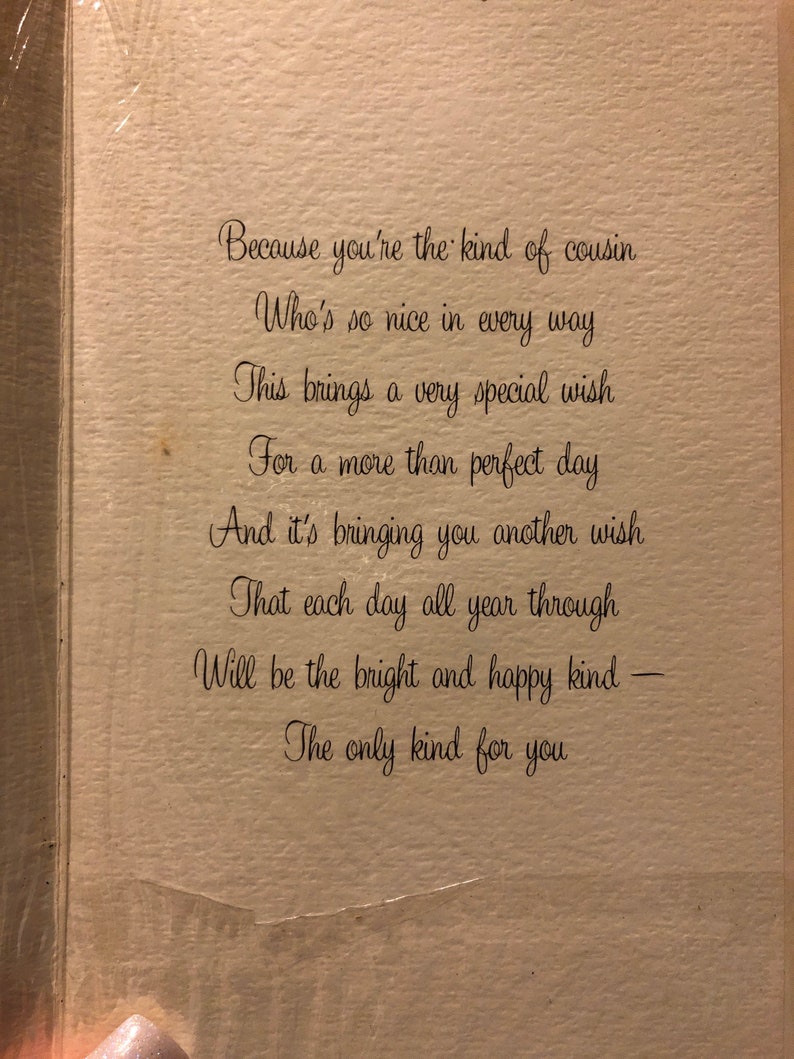 Because you're the kind of cousin
Who's so nice in every way
This brings a very special wish
For a more than perfect day
And it's bringing you another wish
That each day all year through
Will be the bright and happy kind —
The only kind for you